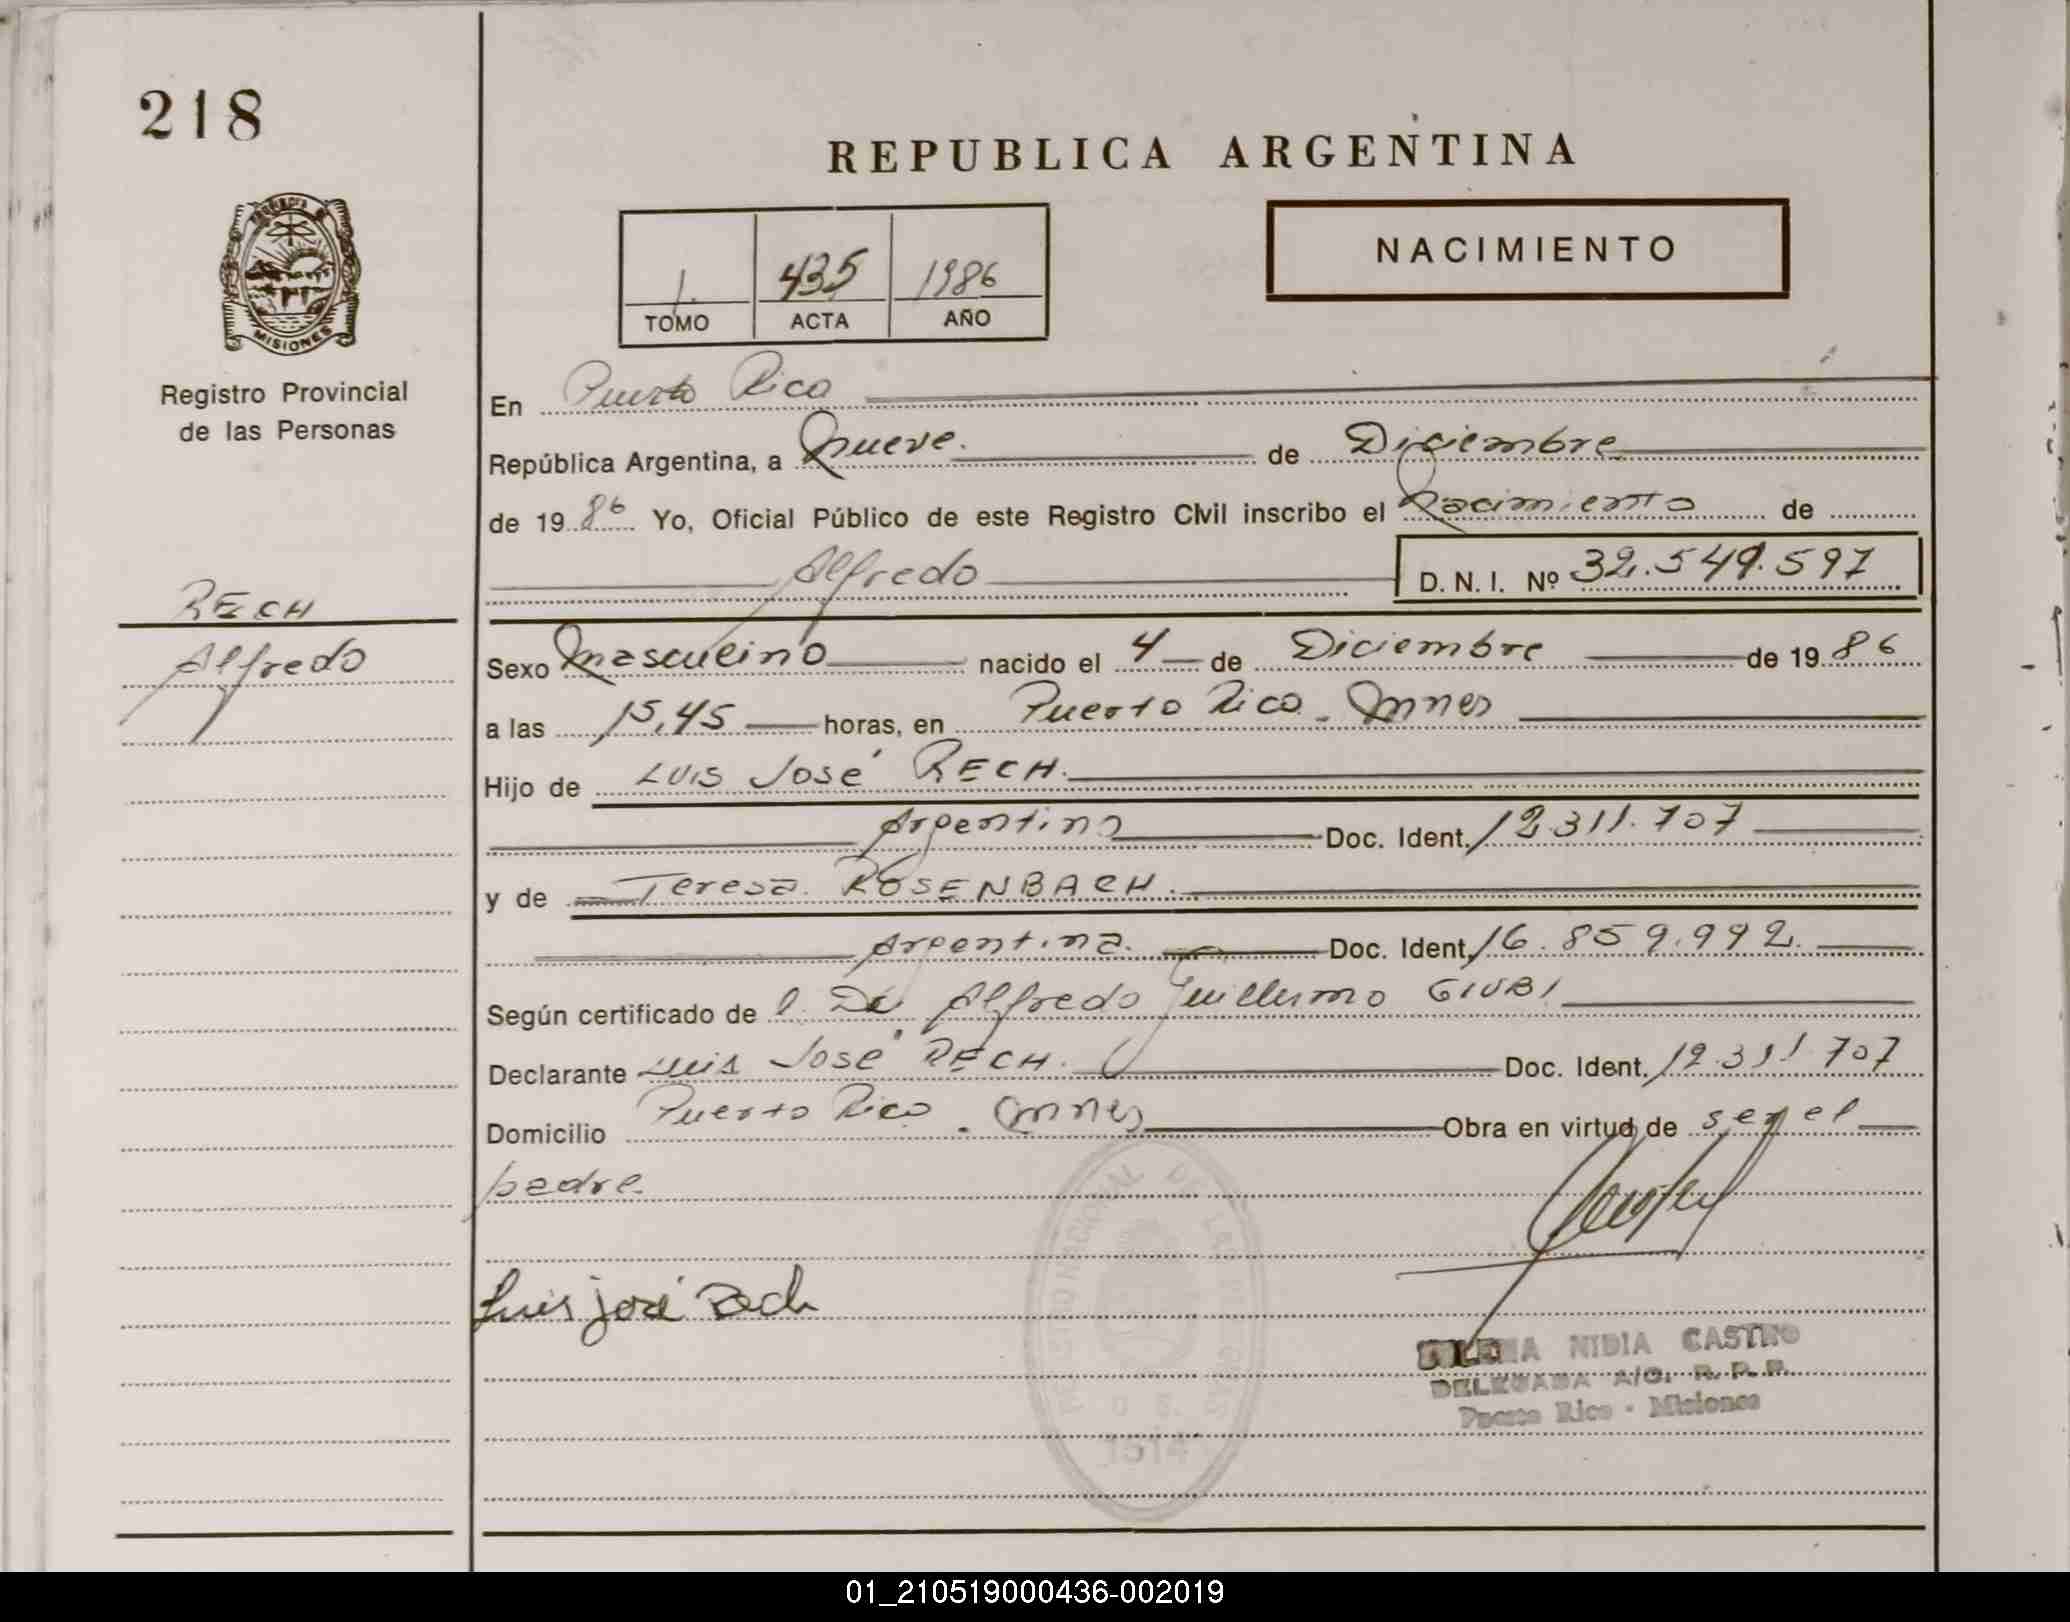 218
REPUBLICA ARGENTINA
NACIMIENTO
1. 435 1986
TOMO ACTA AÑO
MISIONES
Registro Provincial
de las Personas
RECH
Alfredo
En Puerto Rico
República Argentina, a nueve. de Diciembre
de 1986 Yo, Oficial Público de este Registro Civil inscribo el Nacimiento de
Alfredo D.N.I. Nº 32.549.597
Sexo Masculino nacido el 4 de Diciembre de 1986
a las 15,45 horas, en Puerto Rico. Mnes
Hijo de Luis José RECH.
Argentino Doc. Ident. 12.311.707
y de Teresa ROSENBACH.
Argentina. Doc. Ident. 16.859.992.
Según certificado de Alfredo Guillermo GIUBI
Declarante Luis José RECH. Doc. Ident. 12.311.707
Domicilio Puerto Rico. Mnes Obra en virtud de ser el
padre.
Luis José Rech
NIDIA CASTRO
DELEGADA A/C. R. P. P.
Puerto Rico - Misiones
REGISTRO NACIONAL DE LAS PERSONAS
O. S.
1514
01_210519000436-002019